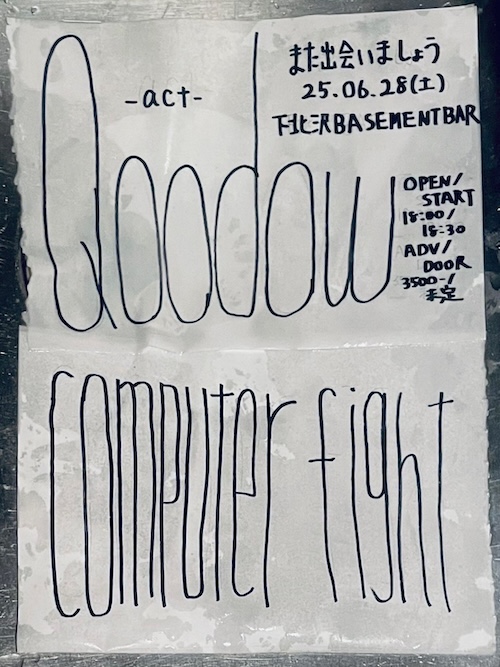 また出会いましょう
25.06.28(土)
下北沢BASEMENTBAR
-act-
Qoodow
OPEN/
START
18:00/
18:30
ADV/
DOOR
3500-/
未定
computer fight